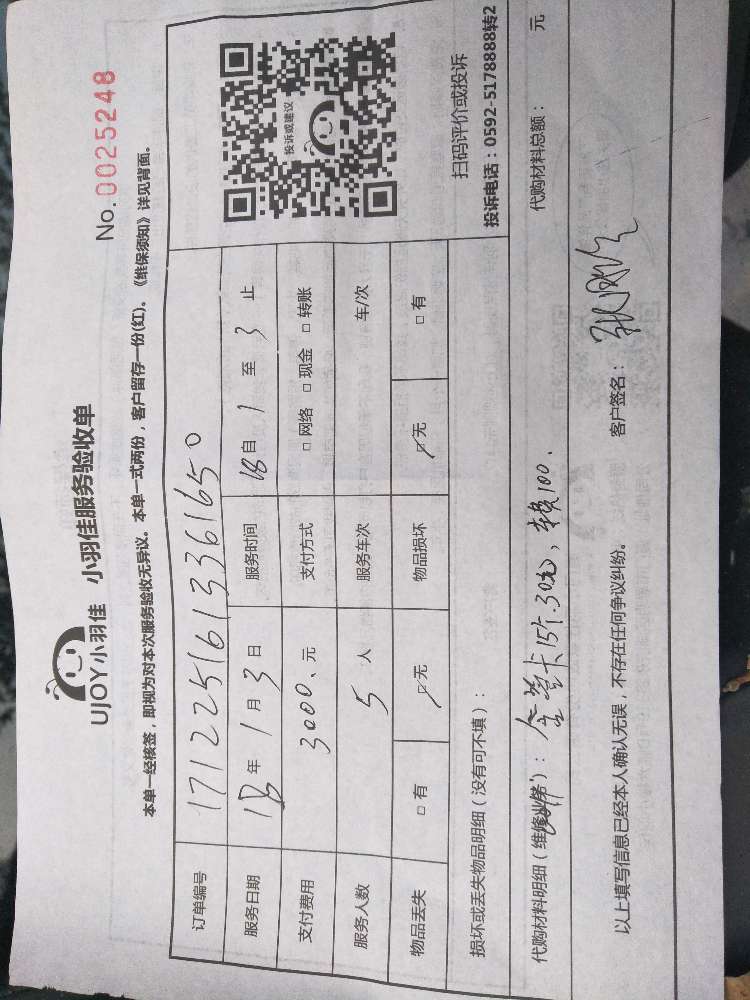 UJOY小羽佳 小羽佳服务验收单
No.0025248
本单一经核签，即视为对本次服务验收无异议。本单一式两份，客户留存一份(红)。《维保须知》详见背面。
订单编号 1712251613361650
服务日期 18年1月3日 服务时间 自1至3止
支付费用 3000、元 支付方式 □网络 □现金 □转账
服务人数 5人 服务车次 车/次
物品丢失 □有 ☑无 物品损坏 ☑无 □有
投诉或建议
扫码评价或投诉
投诉电话：0592-5178888转2
损坏或丢失物品明细（没有可不填）：
代购材料明细（维修业务）：卡15个.30元，车费100、
代购材料总额： 元
以上填写信息已经本人确认无误，不存在任何争议纠纷。 客户签名：